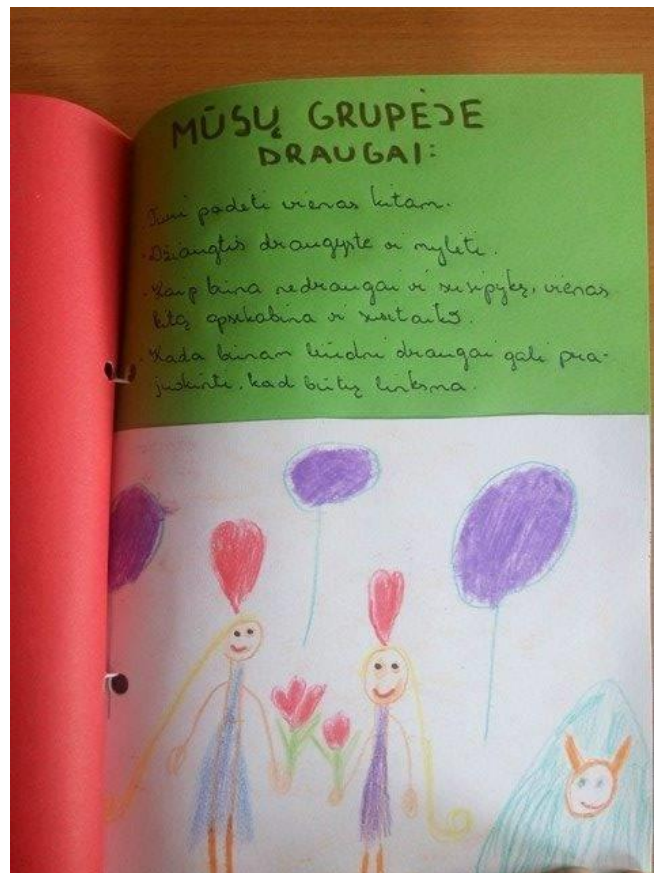 MŪSŲ GRUPĖJE
DRAUGAI:
Turi padėti vienas kitam.
· Džiaugtis draugyste ir mylėti.
· Kaip būna nedraugai ir susipykę, vienas
kitą apsikabina ir susitaiko.
· Kada būnam liūdni draugai gali pra-
juokinti, kad būtų linksma.